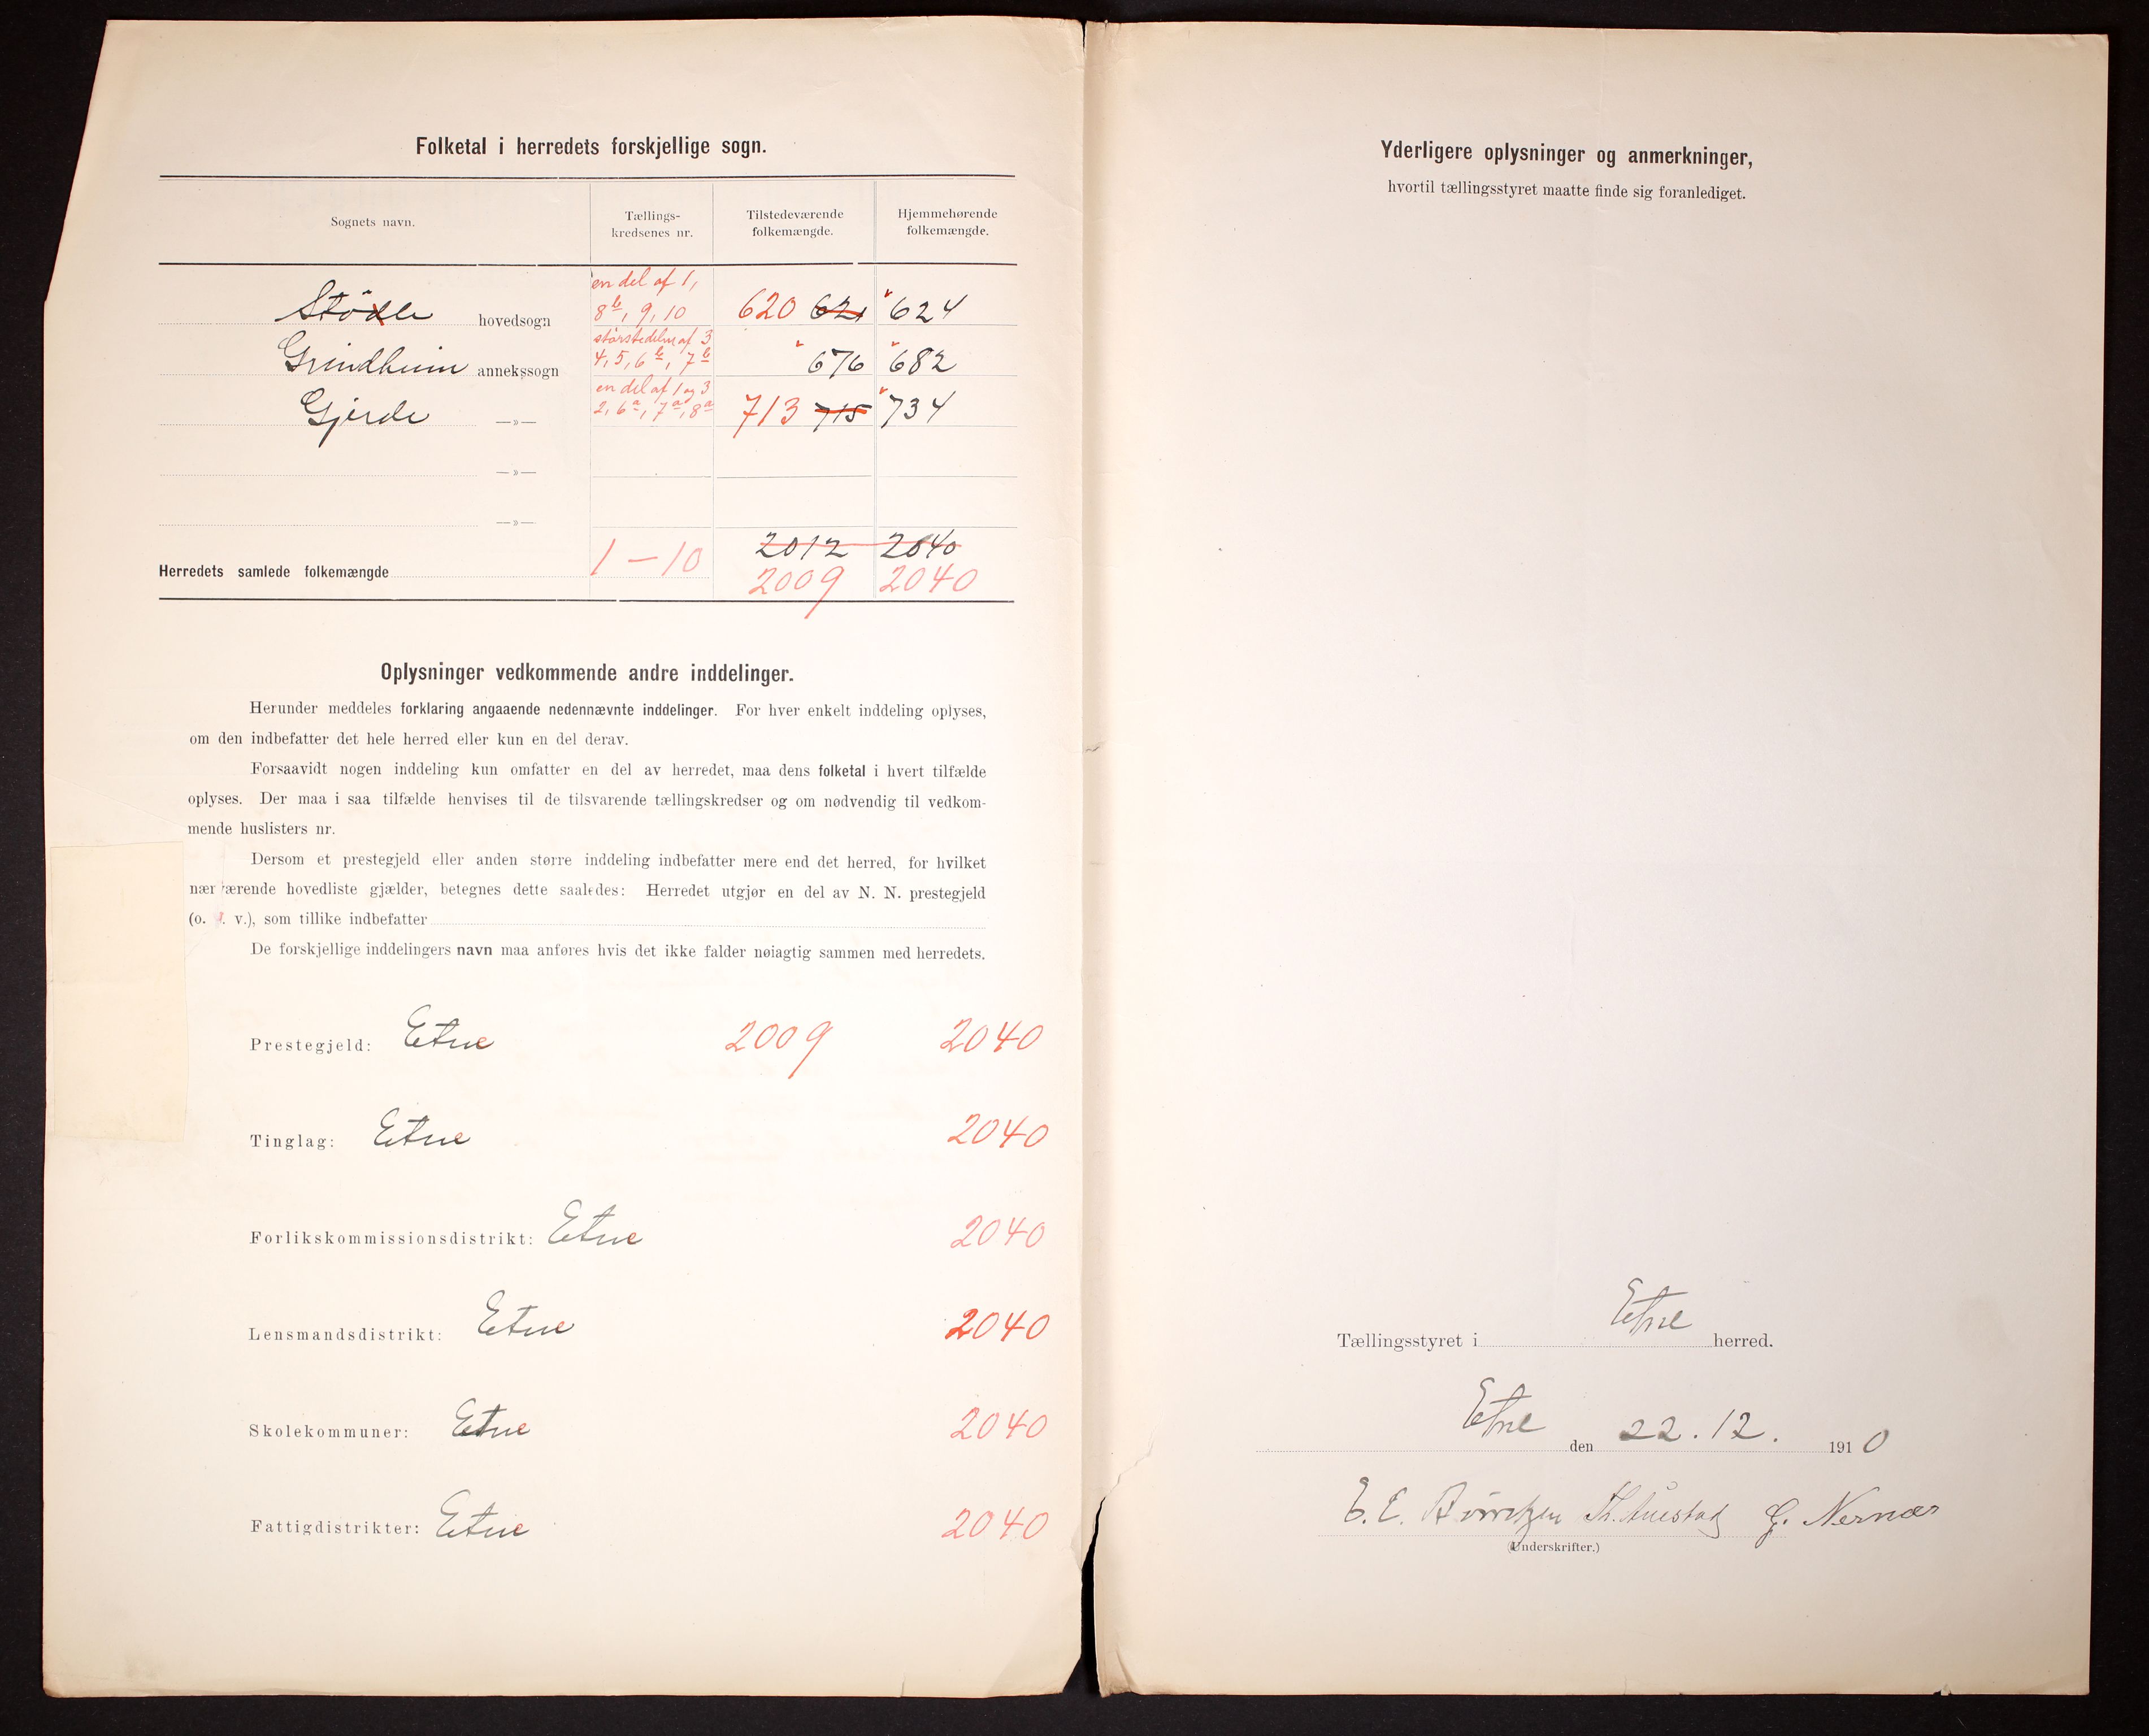 Folketal i herredets forskjellige sogn.
Sognets navn.
Tællings-
kredsenes nr.
Tilstedeværende
folkemængde.
Hjemmehørende
folkemængde.
en del af 1,
Stødle hovedsogn 8b, 9, 10 620 621 624
størstedelen af 3
Grindheim annekssogn 4, 5, 6b, 7b 676 682
en del af 1 og 3
Gjerde —»— 2, 6a, 7a, 8a 713 715 734
—»—
—»—
2012 2040
Herredets samlede folkemængde 1 – 10 2009 2040
Oplysninger vedkommende andre inddelinger.
Herunder meddeles forklaring angaaende nedennævnte inddelinger. For hver enkelt inddeling oplyses,
om den indbefatter det hele herred eller kun en del derav.
Forsaavidt nogen inddeling kun omfatter en del av herredet, maa dens folketal i hvert tilfælde
oplyses. Der maa i saa tilfælde henvises til de tilsvarende tællingskredser og om nødvendig til vedkom-
mende huslisters nr.
Dersom et prestegjeld eller anden større inddeling indbefatter mere end det herred, for hvilket
nærværende hovedliste gjælder, betegnes dette saaledes: Herredet utgjør en del av N. N. prestegjeld
(o. s. v.), som tillike indbefatter
De forskjellige inddelingers navn maa anføres hvis det ikke falder nøiagtig sammen med herredets.
Prestegjeld: Etne 2009 2040
Tinglag: Etne 2040
Forlikskommissionsdistrikt: Etne 2040
Lensmandsdistrikt: Etne 2040
Skolekommuner: Etne 2040
Fattigdistrikter: Etne 2040
Yderligere oplysninger og anmerkninger,
hvortil tællingsstyret maatte finde sig foranlediget.
Tællingsstyret i Etne herred.
Etne den 22. 12. 1910
E. E. G. Nernæs
(Underskrifter.)